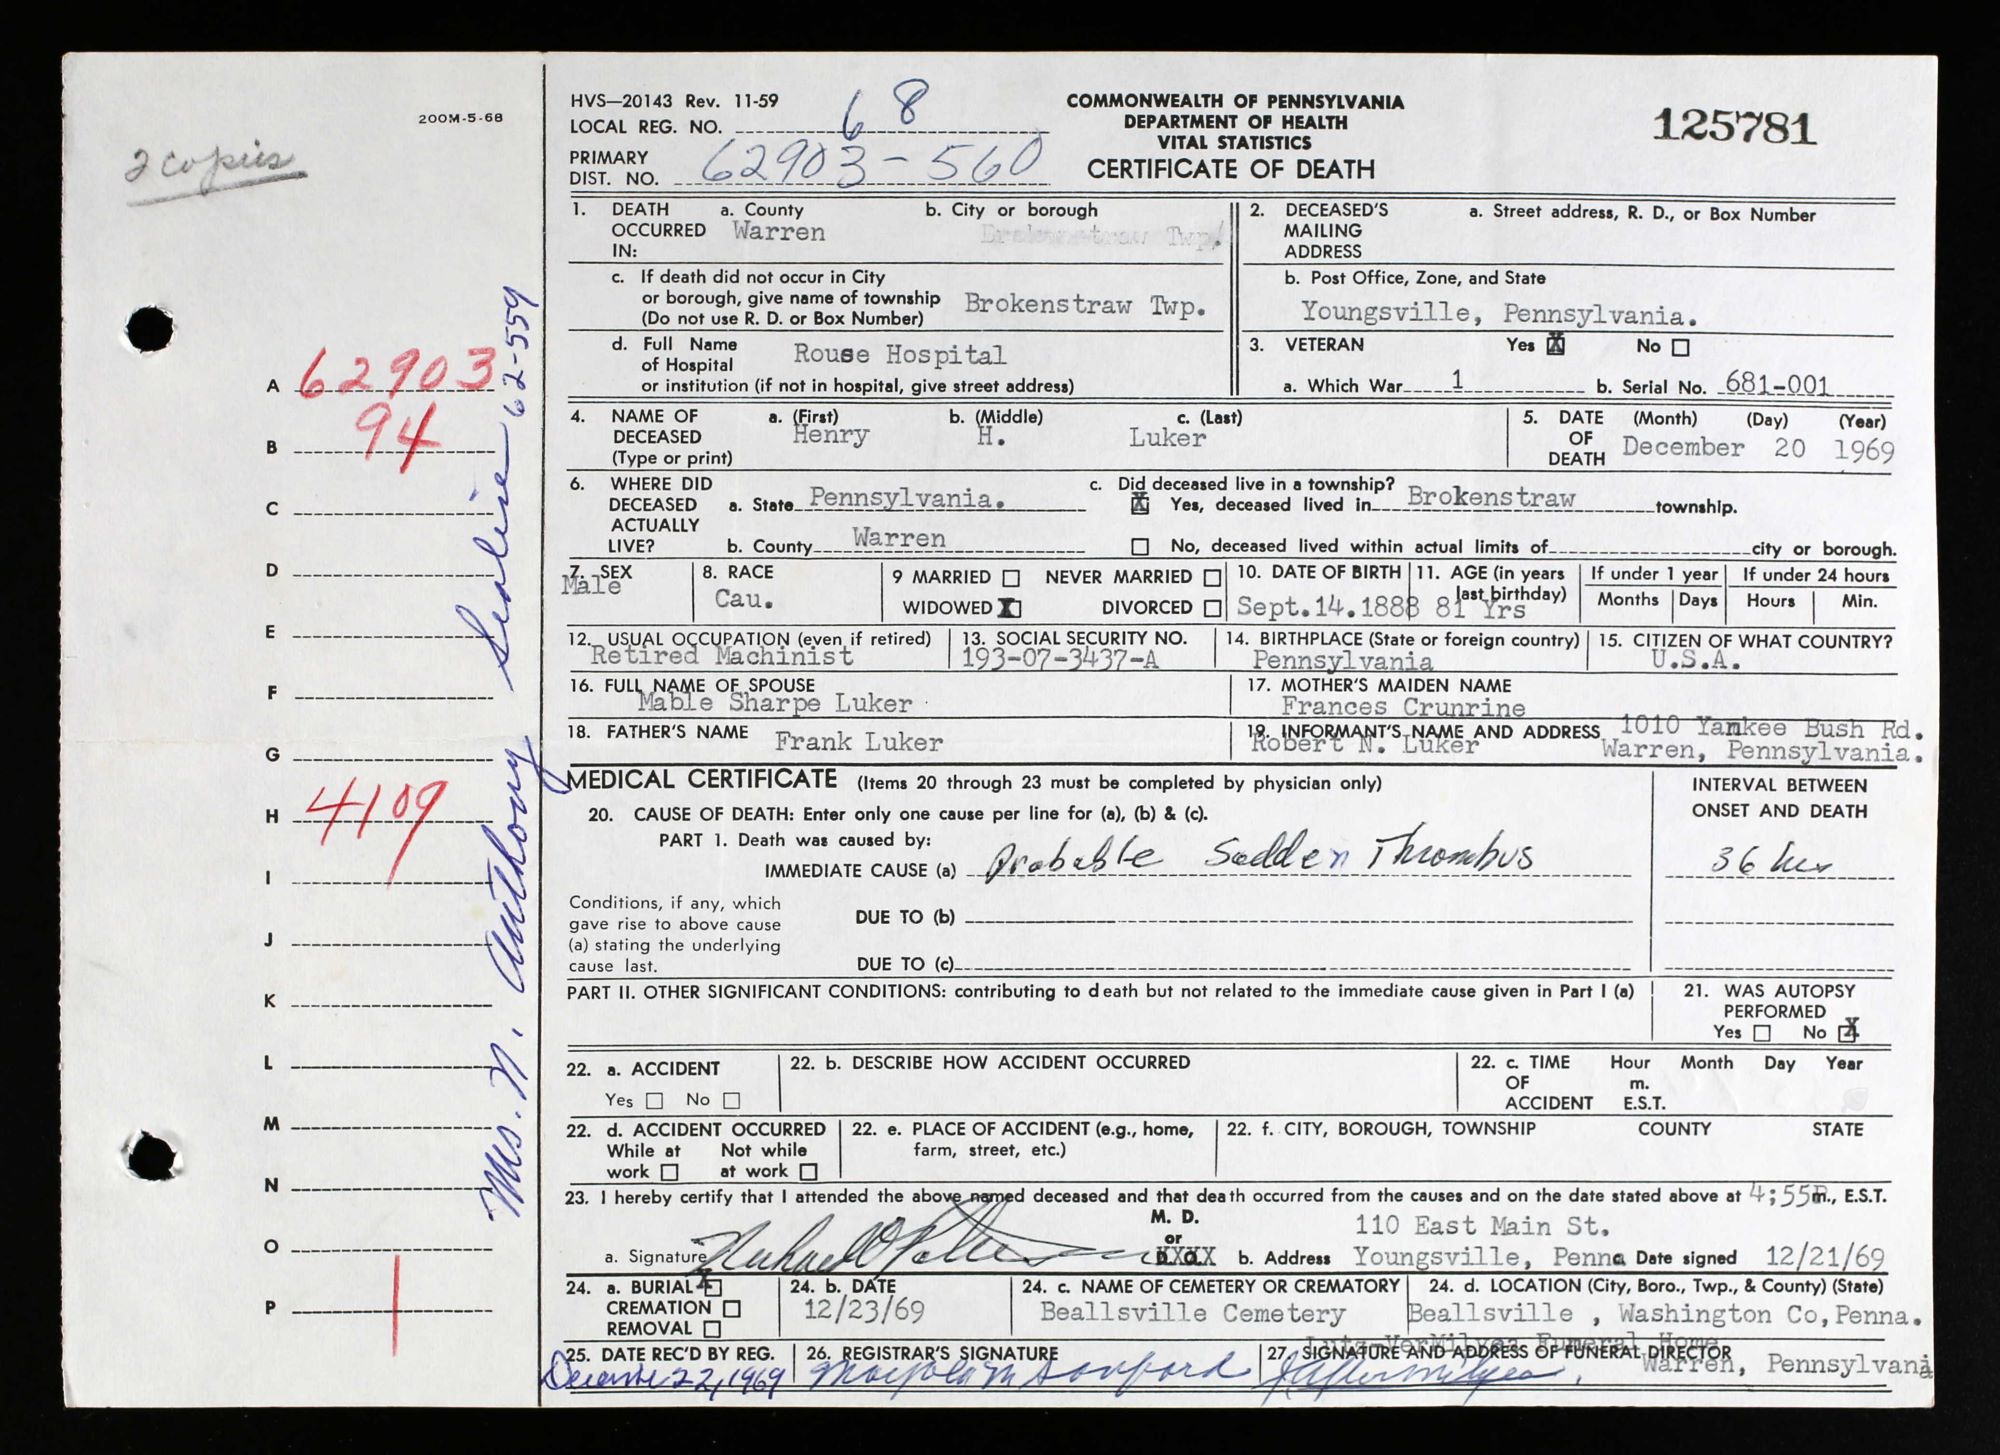 200M-5-68
2 copies
A 62903
B 94
C
D
E
F
G
H 4109
I
J
K
L
M
N
O
P 1
Mrs. N. Anthony 62-559
HVS—20143 Rev. 11-59
LOCAL REG. NO. 68
PRIMARY
DIST. NO. 62903-560
COMMONWEALTH OF PENNSYLVANIA
DEPARTMENT OF HEALTH
VITAL STATISTICS
CERTIFICATE OF DEATH
125781
1. DEATH OCCURRED IN: a. County Warren b. City or borough Brokenstraw Twp.
c. If death did not occur in City
or borough, give name of township Brokenstraw Twp.
(Do not use R. D. or Box Number)
d. Full Name
of Hospital Rouse Hospital
or institution (if not in hospital, give street address)
2. DECEASED'S MAILING ADDRESS a. Street address, R. D., or Box Number
b. Post Office, Zone, and State
Youngsville, Pennsylvania.
3. VETERAN Yes X No
a. Which War 1 b. Serial No. 681-001
4. NAME OF DECEASED (Type or print) a. (First) Henry b. (Middle) H. c. (Last) Luker
5. DATE OF DEATH (Month) (Day) (Year)
December 20 1969
6. WHERE DID DECEASED ACTUALLY LIVE? a. State Pennsylvania.
b. County Warren
c. Did deceased live in a township?
X Yes, deceased lived in Brokenstraw township.
No, deceased lived within actual limits of city or borough.
7. SEX Male
8. RACE Cau.
9 MARRIED NEVER MARRIED
WIDOWED X DIVORCED
10. DATE OF BIRTH Sept.14.1888
11. AGE (in years last birthday) 81 Yrs
If under 1 year Months Days
If under 24 hours Hours Min.
12. USUAL OCCUPATION (even if retired)
Retired Machinist
13. SOCIAL SECURITY NO.
193-07-3437-A
14. BIRTHPLACE (State or foreign country)
Pennsylvania
15. CITIZEN OF WHAT COUNTRY?
U.S.A.
16. FULL NAME OF SPOUSE
Mable Sharpe Luker
17. MOTHER'S MAIDEN NAME
Frances Crunrine
18. FATHER'S NAME Frank Luker
19. INFORMANT'S NAME AND ADDRESS 1010 Yankee Bush Rd.
Robert N. Luker Warren, Pennsylvania.
MEDICAL CERTIFICATE (Items 20 through 23 must be completed by physician only)
INTERVAL BETWEEN
ONSET AND DEATH
20. CAUSE OF DEATH: Enter only one cause per line for (a), (b) & (c).
PART 1. Death was caused by:
IMMEDIATE CAUSE (a) Probable Sudden Thrombus 36 hrs
Conditions, if any, which
gave rise to above cause
(a) stating the underlying
cause last.
DUE TO (b)
DUE TO (c)
PART II. OTHER SIGNIFICANT CONDITIONS: contributing to death but not related to the immediate cause given in Part I (a)
21. WAS AUTOPSY
PERFORMED
Yes No X
22. a. ACCIDENT
Yes No
22. b. DESCRIBE HOW ACCIDENT OCCURRED
22. c. TIME OF ACCIDENT Hour Month Day Year
m.
E.S.T.
22. d. ACCIDENT OCCURRED
While at work Not while at work
22. e. PLACE OF ACCIDENT (e.g., home,
farm, street, etc.)
22. f. CITY, BOROUGH, TOWNSHIP COUNTY STATE
23. I hereby certify that I attended the above named deceased and that death occurred from the causes and on the date stated above at 4;55P m., E.S.T.
a. Signature M. D. or D. O. XXXX
b. Address 110 East Main St.
Youngsville, Penna Date signed 12/21/69
24. a. BURIAL X
CREMATION
REMOVAL
24. b. DATE
12/23/69
24. c. NAME OF CEMETERY OR CREMATORY
Beallsville Cemetery
24. d. LOCATION (City, Boro., Twp., & County) (State)
Beallsville , Washington Co, Penna.
25. DATE REC'D BY REG.
December 22, 1969
26. REGISTRAR'S SIGNATURE
Lutz-VerMilyea Funeral Home
27. SIGNATURE AND ADDRESS OF FUNERAL DIRECTOR
Warren, Pennsylvani